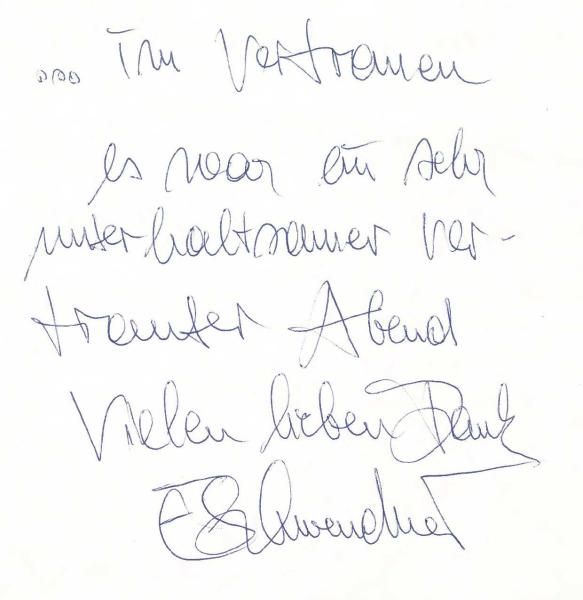 ... Im Vertrauen
es war ein sehr
unterhaltsamer ver-
trauter Abend
Vielen lieben Dank